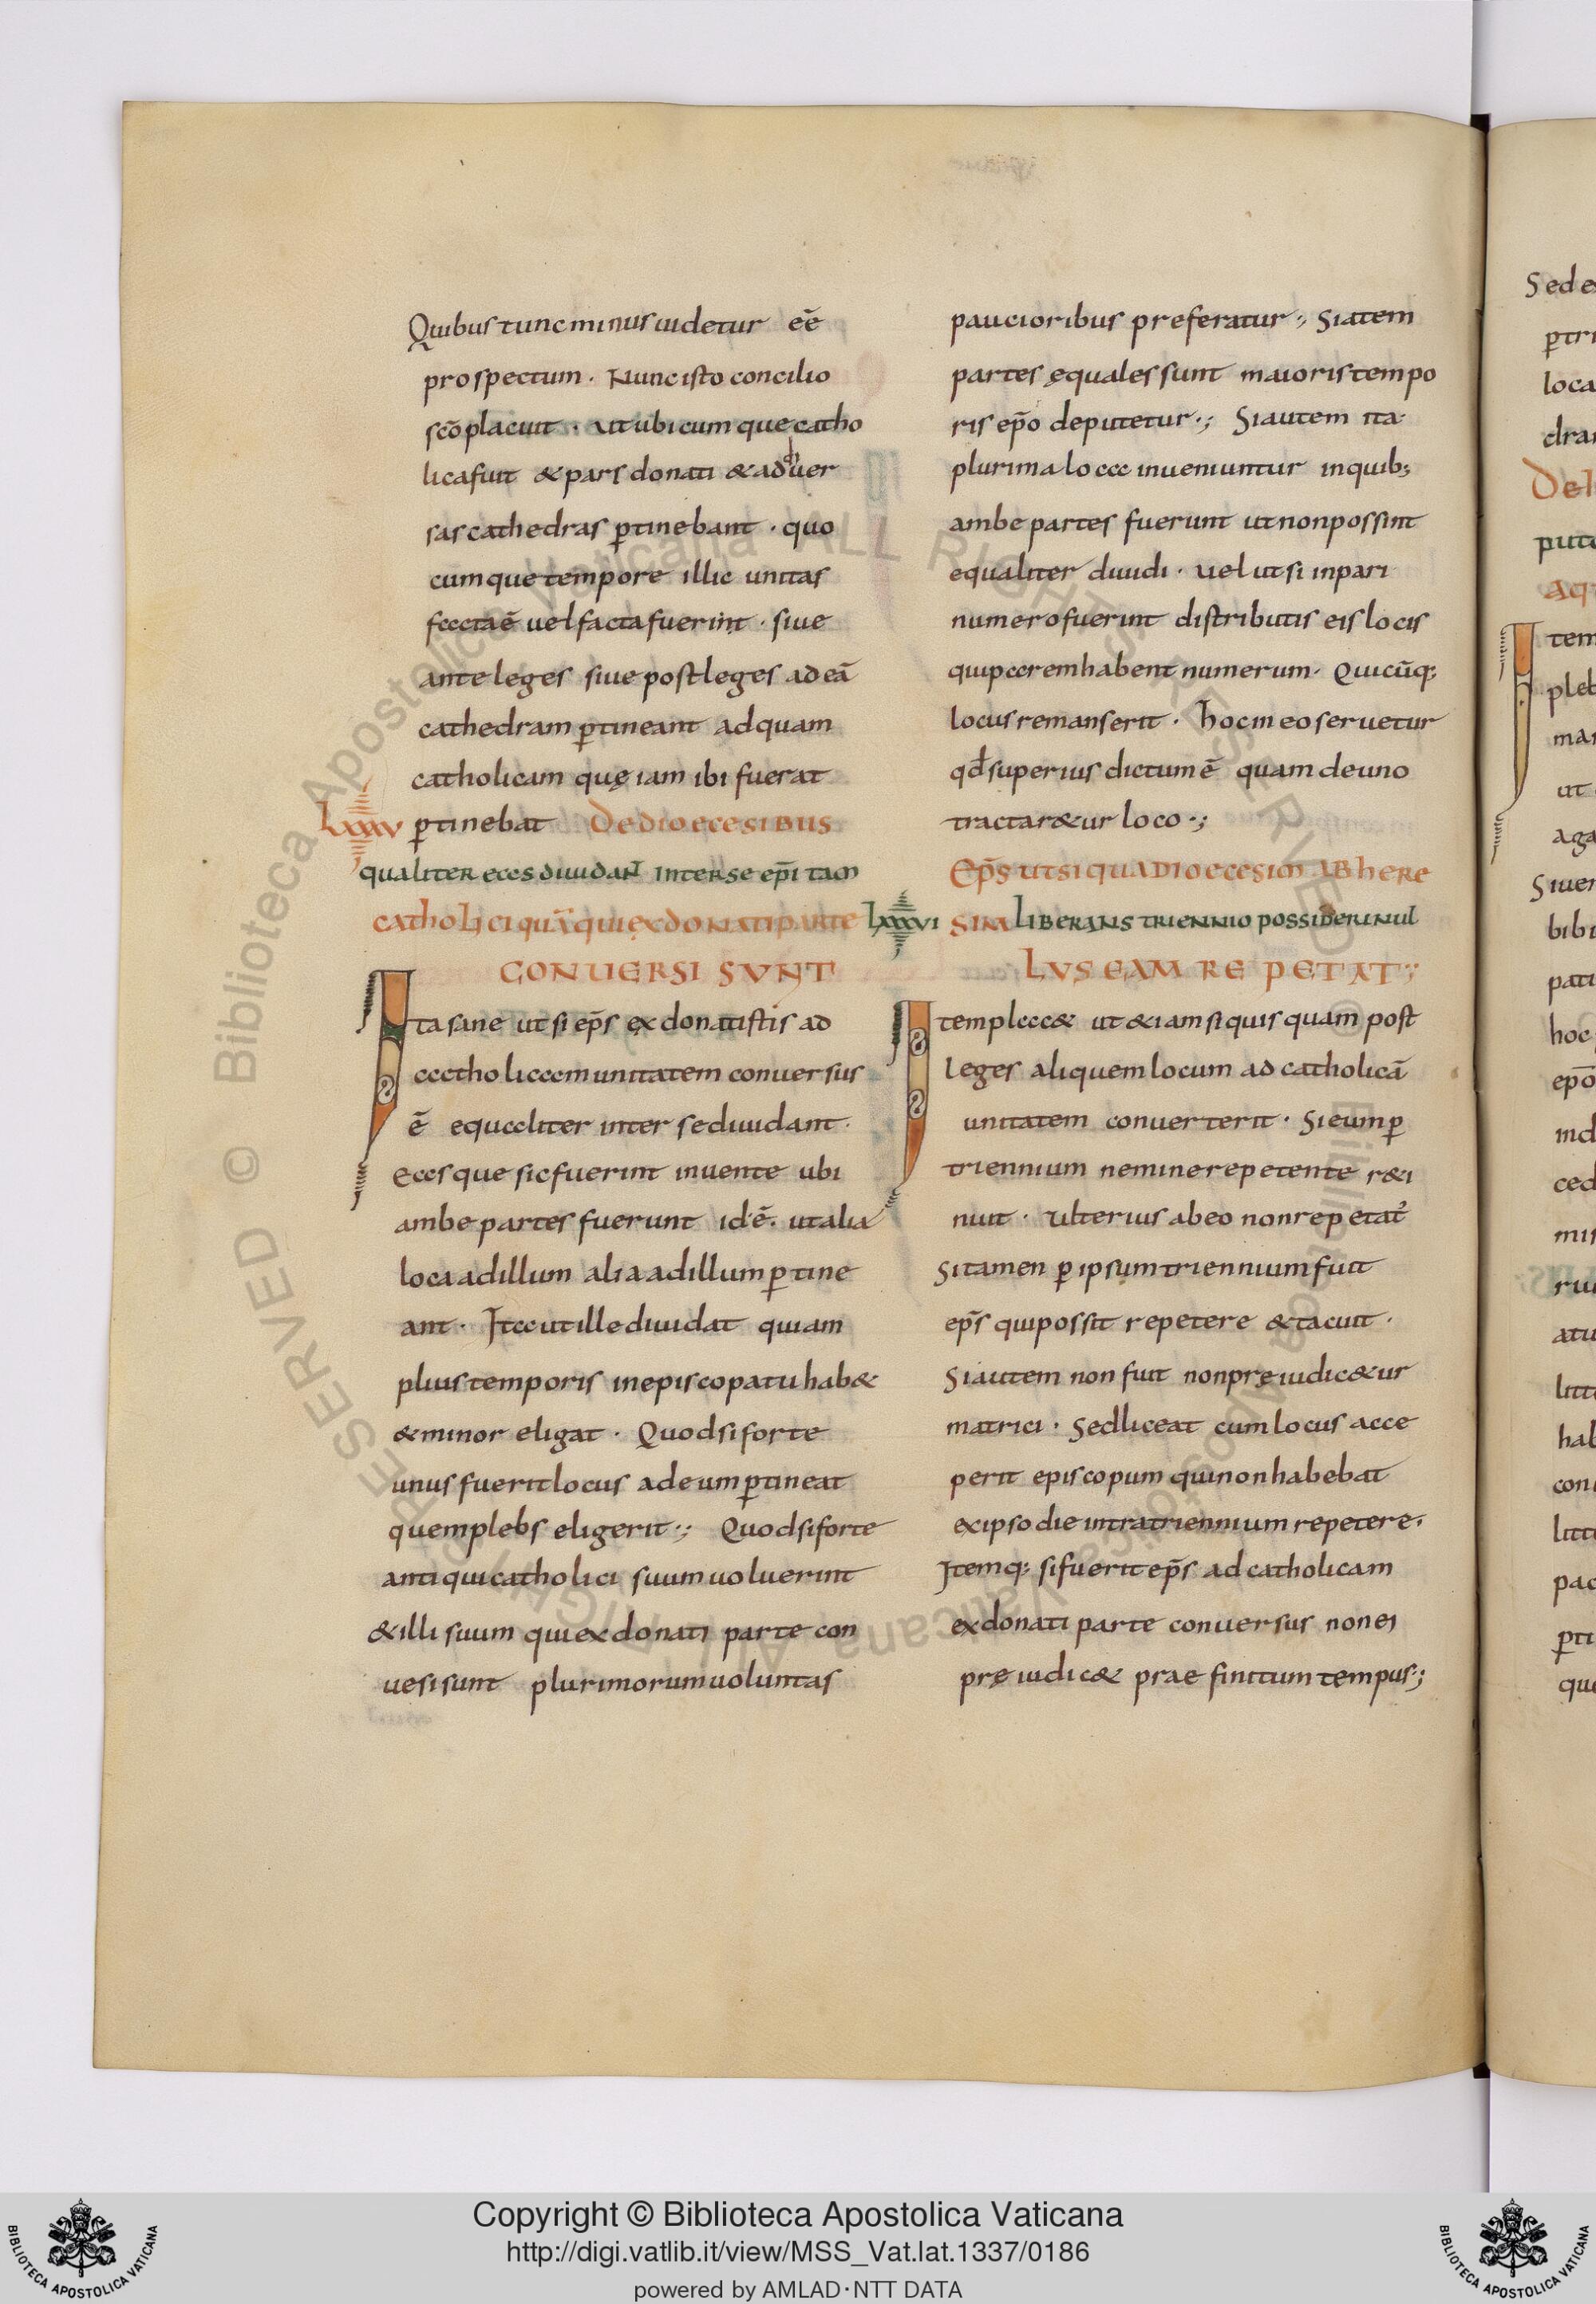 Quibus tunc minus uidetur eē
prospectum · Nunc isto concilio
scō placuit · ut ubicumque catho
lica fuit & pars donati & aduer
sas cathedras ꝑtinebant · quo
cumque tempore illic unitas
facta ē uel facta fuerint · siue
ante leges siue post leges ad eā
cathedram ꝑtineant ad quam
catholicam quę iam ibi fuerat
Lxxxv ꝑtinebat De dioecesibus
qualiter eas diuidant inter se ep̄i tam
catholici quā qui ex donati parte
CONUERSI SVNT
Ita sane ut si ep̄s ex donatistis ad
catholicam unitatem conuersus
ē equaliter inter se diuidant ·
Eas que sic fuerint inuente ubi
ambe partes fuerunt id·ē· ut alia
loca ad illum alia ad illum ꝑtine
ant · Ita ut ille diuidat qui am
plius temporis in episcopatu hab&
& minor eligat · Quod si forte
unus fuerit locus ad eum ꝑtineat
quem plebs eligerit ·; Quod si forte
antiqui catholici suum uoluerint
& illi suum qui ex donati parte con
uesi sunt plurimorum uoluntas
paucioribus preferatur ·; Si atem
partes ęquales sunt maioris tempo
ris ep̄o deputetur ·; Si autem ita
plurima loca inueniuntur in quib;
ambe partes fuerunt ut non possint
equaliter diuidi · uel ut si in pari
numero fuerint distributis eis locis
qui parem habent numerum · Quicūq;
locus remanserit · hoc in eo seruetur
qd̄ superius dictum ē quam de uno
tractar&ur loco ·;
Ep̄s ut si qua dioecesim ab here
Lxxxvi sim liberans triennio possiderit nul
LVS EAM REPETAT ·;
Item plac& ut &iam si quisquam post
leges aliquem locum ad catholicā
unitatem conuerterit · Si eum ꝑ
triennium nemine repetente r&i
nuit · ulterius ab eo non repetat᷑
Si tamen ꝑ ipsum triennium fuit
ep̄s qui possit repetere & tacuit ·
Si autem non fuit non pręiudic&ur
matrici · Sed liceat cum locus acce
perit episcopum qui non habebat
ex ipso die intra triennium repetere ·
Itemq; si fuerit ep̄s ad catholicam
ex donati parte conuersus non ei
pręiudic& prae finitum tempus ;
Sed e
ꝑtri
loca
dra
De
puta
aq
tem
pleb
ma
ut
aga
Siue
bibi
pati
hoc
ep̄o
ind
ced
mis
riu
atu
litt
hab
con
litt
pac
ꝑti
que
Copyright © Biblioteca Apostolica Vaticana
http://digi.vatlib.it/view/MSS_Vat.lat.1337/0186
powered by AMLAD·NTT DATA
BIBLIOTECA APOSTOLICA VATICANA
BIBLIOTECA APOSTOLICA VATICANA